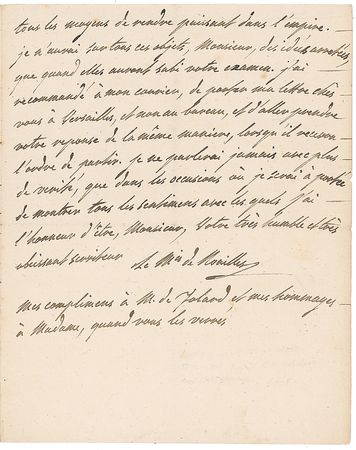 tous les moyens de rendre puissant dans l'empire.
je n'aurai sur tous ces objets, Monsieur, des idées arrêtées,
que quand elles auront subi votre examen. j'ai
recommandé à mon courier, de porter ma lettre chés
vous à Versailles, et non au bureau, et d'aller prendre
votre reponse de la même maniere, lorsqu'il recevra
l'ordre de partir. je ne parlerai jamais avec plus
de verité, que dans les occasions où je serai à portée
de montrer tous les sentimens avec les quels j'ai
l'honneur d'être, Monsieur, Votre très humble et très
obéissant serviteur
Le Mis de Noailles
mes complimens à M. de Foland et mes hommages
à Madame, quand vous les verrés